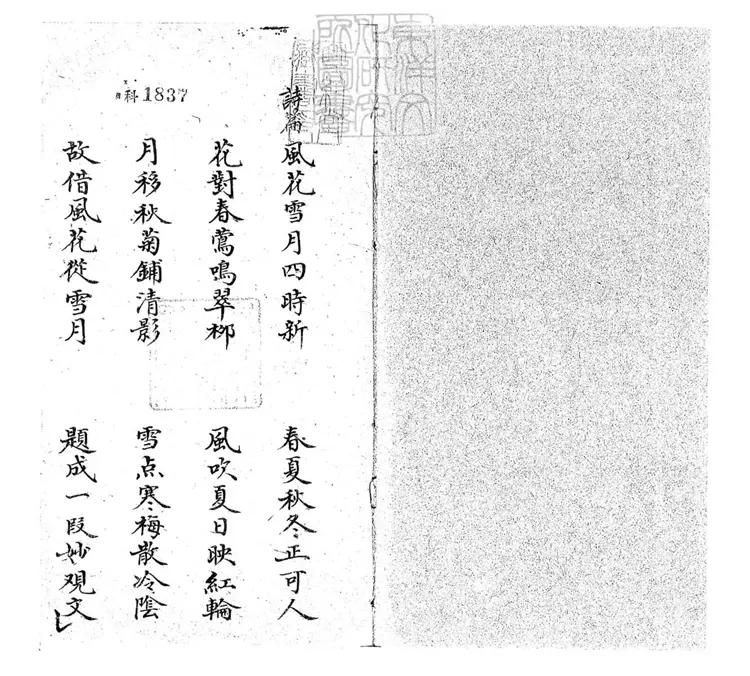 詩篇
風花雪月四時新 春夏秋冬正可人
花對春鶯鳴翠柳 風吹夏日映紅輪
月移秋菊鋪清影 雪点寒梅散冷陰
故借風花從雪月 題成一段妙观文
科1837